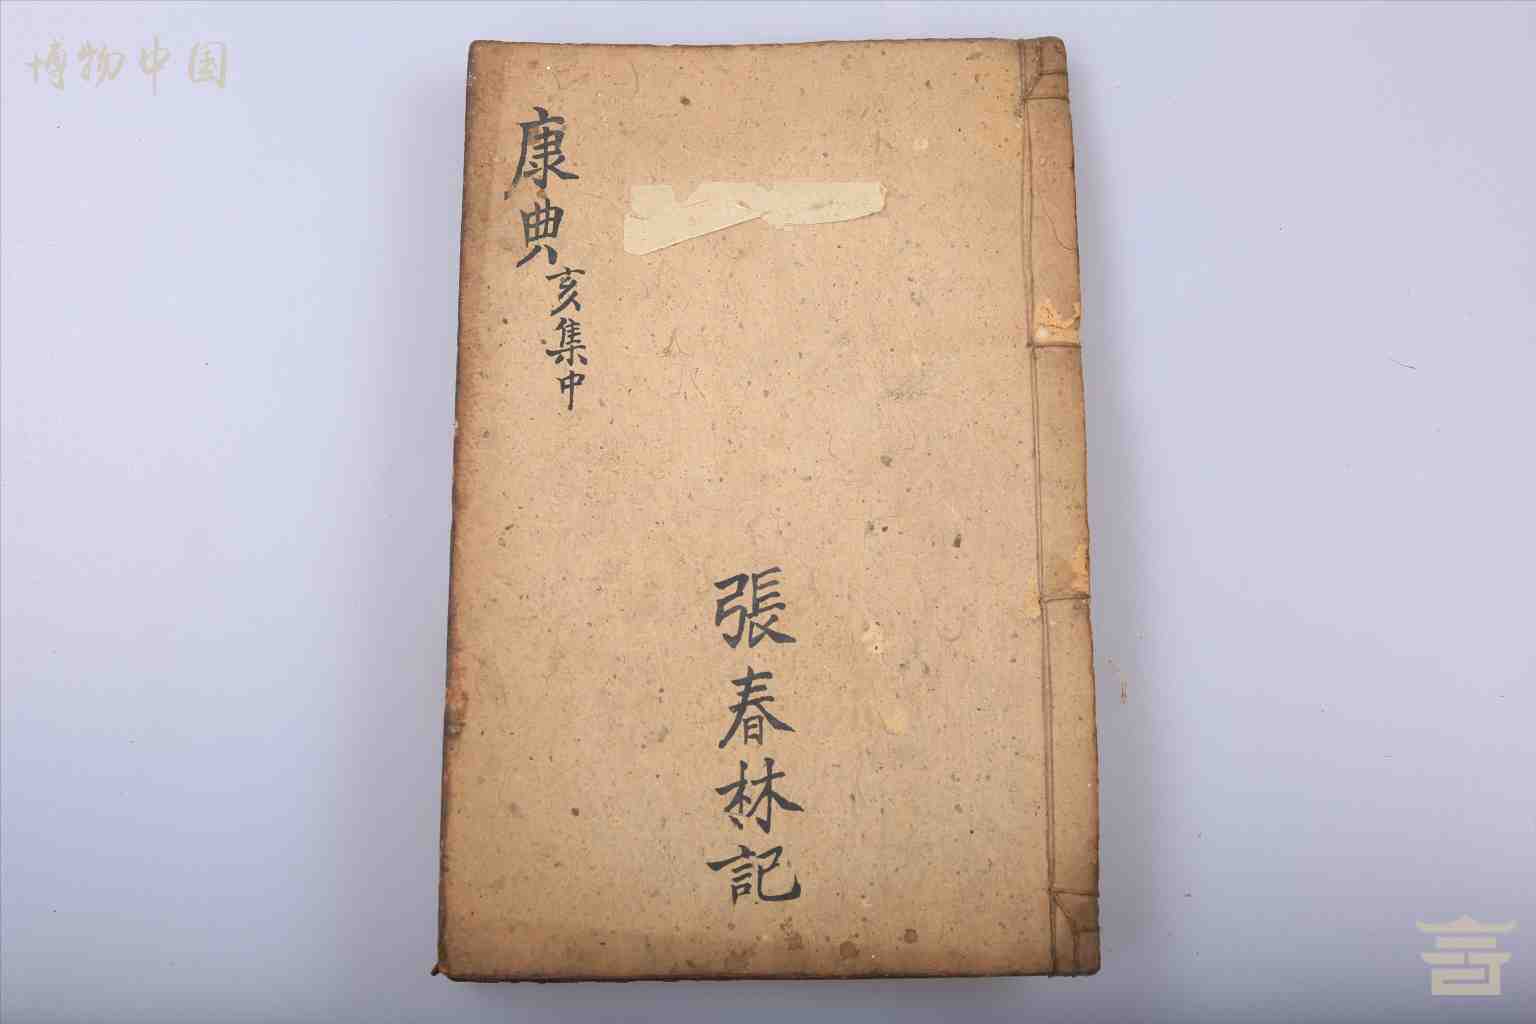 博物中国
康典
亥集中
張春林記